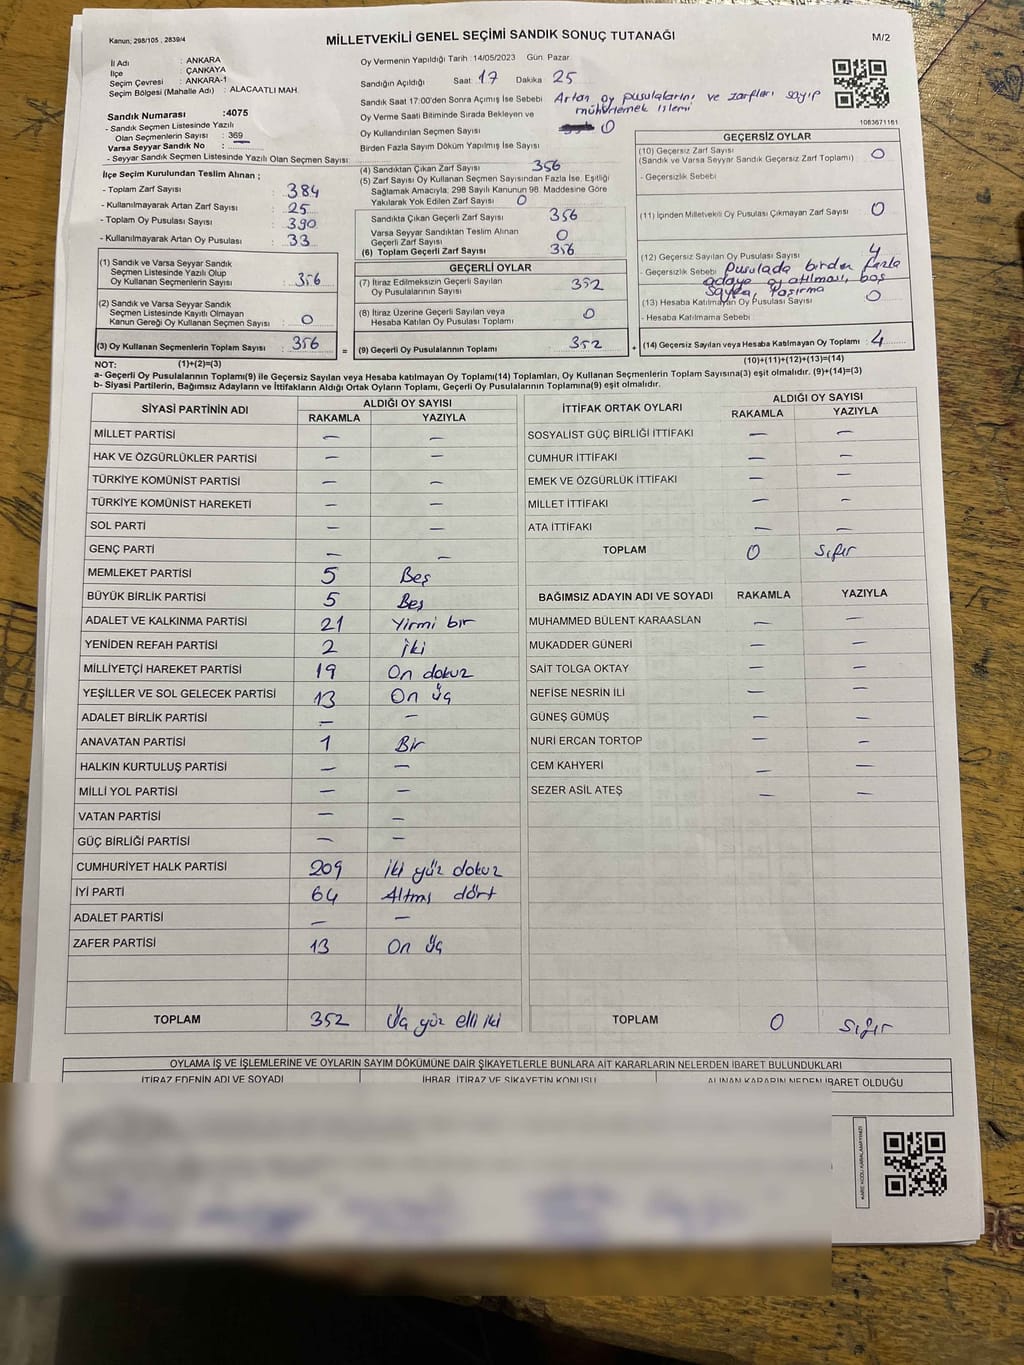 Kanun; 298/105 , 2839/4
MİLLETVEKİLİ GENEL SEÇİMİ SANDIK SONUÇ TUTANAĞI
M/2
İl Adı : ANKARA
İlçe : ÇANKAYA
Seçim Çevresi : ANKARA-1
Seçim Bölgesi (Mahalle Adı) : ALACAATLI MAH.
Sandık Numarası :4075
- Sandık Seçmen Listesinde Yazılı
Olan Seçmenlerin Sayısı : 369
Varsa Seyyar Sandık No :
- Seyyar Sandık Seçmen Listesinde Yazılı Olan Seçmen Sayısı:
Oy Vermenin Yapıldığı Tarih :14/05/2023 Gün: Pazar
Sandığın Açıldığı Saat: 17 Dakika 25
Sandık Saat 17:00'den Sonra Açımış İse Sebebi Artan oy pusulalarını ve zarfları sayıp
mühürlemek işlemi
Oy Verme Saati Bitiminde Sırada Bekleyen ve
Oy Kullandırılan Seçmen Sayısı 0
Birden Fazla Sayım Döküm Yapılmış İse Sayısı
1083671161
İlçe Seçim Kurulundan Teslim Alınan ;
- Toplam Zarf Sayısı : 384
- Kullanılmayarak Artan Zarf Sayısı : 25
- Toplam Oy Pusulası Sayısı : 390
- Kullanılmayarak Artan Oy Pusulası : 33
(1) Sandık ve Varsa Seyyar Sandık
Seçmen Listesinde Yazılı Olup
Oy Kullanan Seçmenlerin Sayısı : 356
(2) Sandık ve Varsa Seyyar Sandık
Seçmen Listesinde Kayıtlı Olmayan
Kanun Gereği Oy Kullanan Seçmen Sayısı : 0
(3) Oy Kullanan Seçmenlerin Toplam Sayısı : 356
(4) Sandıktan Çıkan Zarf Sayısı 356
(5) Zarf Sayısı Oy Kullanan Seçmen Sayısından Fazla İse, Eşitliği
Sağlamak Amacıyla; 298 Sayılı Kanunun 98. Maddesine Göre
Yakılarak Yok Edilen Zarf Sayısı : 0
Sandıkta Çıkan Geçerli Zarf Sayısı 356
Varsa Seyyar Sandıktan Teslim Alınan
Geçerli Zarf Sayısı 0
(6) Toplam Geçerli Zarf Sayısı 356
GEÇERLİ OYLAR
(7) İtiraz Edilmeksizin Geçerli Sayılan
Oy Pusulalarının Sayısı 352
(8) İtiraz Üzerine Geçerli Sayılan veya
Hesaba Katılan Oy Pusulası Toplamı 0
= (9) Geçerli Oy Pusulalarının Toplamı 352
GEÇERSİZ OYLAR
(10) Geçersiz Zarf Sayısı
(Sandık ve Varsa Seyyar Sandık Geçersiz Zarf Toplamı) 0
- Geçersizlik Sebebi :
(11) İçinden Milletvekili Oy Pusulası Çıkmayan Zarf Sayısı 0
(12) Geçersiz Sayılan Oy Pusulası Sayısı 4
- Geçersizlik Sebebi Pusulada birden fazla
adaya oy atılması, boş
(13) Hesaba Katılmayan Oy Pusulası Sayısı 0
- Hesaba Katılmama Sebebi
+ (14) Geçersiz Sayılan veya Hesaba Katılmayan Oy Toplamı 4
NOT: (1)+(2)=(3) (10)+(11)+(12)+(13)=(14)
a- Geçerli Oy Pusulalarının Toplamı(9) ile Geçersiz Sayılan veya Hesaba katılmayan Oy Toplamı(14) Toplamları, Oy Kullanan Seçmenlerin Toplam Sayısına(3) eşit olmalıdır. (9)+(14)=(3)
b- Siyasi Partilerin, Bağımsız Adayların ve İttifakların Aldığı Ortak Oyların Toplamı, Geçerli Oy Pusulalarının Toplamına(9) eşit olmalıdır.
SİYASİ PARTİNİN ADI ALDIĞI OY SAYISI
RAKAMLA YAZIYLA
MİLLET PARTİSİ — —
HAK VE ÖZGÜRLÜKLER PARTİSİ — —
TÜRKİYE KOMÜNİST PARTİSİ — —
TÜRKİYE KOMÜNİST HAREKETİ — —
SOL PARTİ — —
GENÇ PARTİ — —
MEMLEKET PARTİSİ 5 Beş
BÜYÜK BİRLİK PARTİSİ 5 Beş
ADALET VE KALKINMA PARTİSİ 21 Yirmi bir
YENİDEN REFAH PARTİSİ 2 iki
MİLLİYETÇİ HAREKET PARTİSİ 19 On dokuz
YEŞİLLER VE SOL GELECEK PARTİSİ 13 On üç
ADALET BİRLİK PARTİSİ — —
ANAVATAN PARTİSİ 1 Bir
HALKIN KURTULUŞ PARTİSİ — —
MİLLİ YOL PARTİSİ — —
VATAN PARTİSİ — —
GÜÇ BİRLİĞİ PARTİSİ — —
CUMHURİYET HALK PARTİSİ 209 iki yüz dokuz
İYİ PARTİ 64 Altmış dört
ADALET PARTİSİ — —
ZAFER PARTİSİ 13 On üç
TOPLAM 352 Üç yüz elli iki
İTTİFAK ORTAK OYLARI ALDIĞI OY SAYISI
RAKAMLA YAZIYLA
SOSYALİST GÜÇ BİRLİĞİ İTTİFAKI — —
CUMHUR İTTİFAKI — —
EMEK VE ÖZGÜRLÜK İTTİFAKI — —
MİLLET İTTİFAKI — —
ATA İTTİFAKI — —
TOPLAM 0 sıfır
BAĞIMSIZ ADAYIN ADI VE SOYADI RAKAMLA YAZIYLA
MUHAMMED BÜLENT KARAASLAN — —
MUKADDER GÜNERİ — —
SAİT TOLGA OKTAY — —
NEFİSE NESRİN İLİ — —
GÜNEŞ GÜMÜŞ — —
NURİ ERCAN TORTOP — —
CEM KAHYERİ — —
SEZER ASİL ATEŞ — —
TOPLAM 0 sıfır
OYLAMA İŞ VE İŞLEMLERİNE VE OYLARIN SAYIM DÖKÜMÜNE DAİR ŞİKAYETLERLE BUNLARA AİT KARARLARIN NELERDEN İBARET BULUNDUKLARI
İTİRAZ EDENİN ADI VE SOYADI İHBAR, İTİRAZ VE ŞİKAYETİN KONUSU ALINAN KARARIN NEDEN İBARET OLDUĞU
KARE KODU KARALAMAYINIZ!